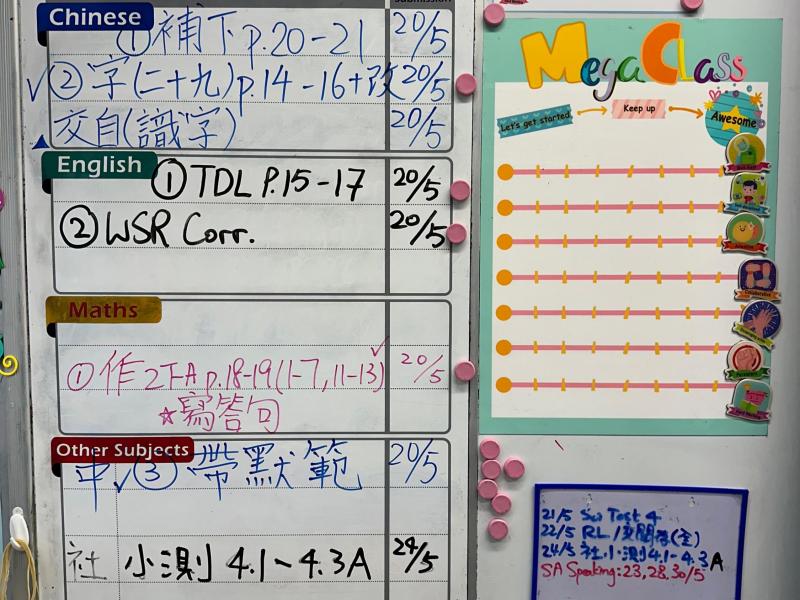 Submission
Chinese
①補下 p.20-21 20/5
✓②字(二十九)p.14-16+改 20/5
▲交自(識字) 20/5
English
①TDL P.15-17 20/5
②WSR Corr. 20/5
Maths
①作2下A p.18-19(1-7, 11-13) 20/5
☆寫答句
Other Subjects
中✓③帶默範 20/5
社 小測 4.1~4.3A 24/5
MegaClass
Let's get started
Keep up
Awesome
Collaborative
21/5 Test 4
22/5 RL
24/5 社小測4.1-4.3A
SA Speaking: 23, 28, 30/5